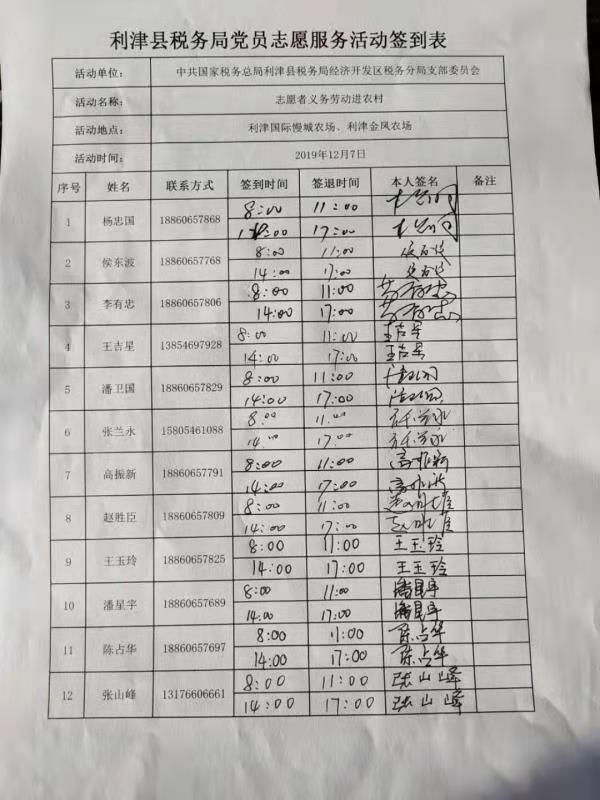 利津县税务局党员志愿服务活动签到表
活动单位： 中共国家税务总局利津县税务局经济开发区税务分局支部委员会
活动名称： 志愿者义务劳动进农村
活动地点： 利津国际慢城农场、利津金凤农场
活动时间： 2019年12月7日
序号 姓名 联系方式 签到时间 签退时间 本人签名 备注
1 杨忠国 18860657868 8:00 11:00
:00 17:00
2 侯东波 18860657768 8:00 11:00
14:00 17:00
3 李有忠 18860657806 8:00 11:00
14:00 17:00
4 王吉星 13854697928 8:00 11:00 王吉星
14:00 17:00 王吉星
5 潘卫国 18860657829 8:00 11:00
14:00 17:00
6 张兰永 15805461088 8:00 11:00 张兰永
14:00 17:00 张兰永
7 高振新 18860657791 8:00 11:00 高振新
14:00 17:00 高振新
8 赵胜臣 18860657809 8:00 11:00
14:00 17:00
9 王玉玲 18860657825 8:00 11:00 王玉玲
14:00 17:00 王玉玲
10 潘星宇 18860657689 8:00 11:00 潘星宇
14:00 17:00 潘星宇
11 陈占华 18860657697 8:00 11:00 陈占华
14:00 17:00 陈占华
12 张山峰 13176606661 8:00 11:00 张山峰
14:00 17:00 张山峰